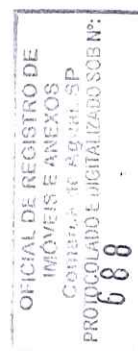 OFICIAL DE REGISTRO DE
IMÓVEIS E ANEXOS
Comarca de Aguaí-SP
PROTOCOLADO E DIGITALIZADO SOB Nº:
688